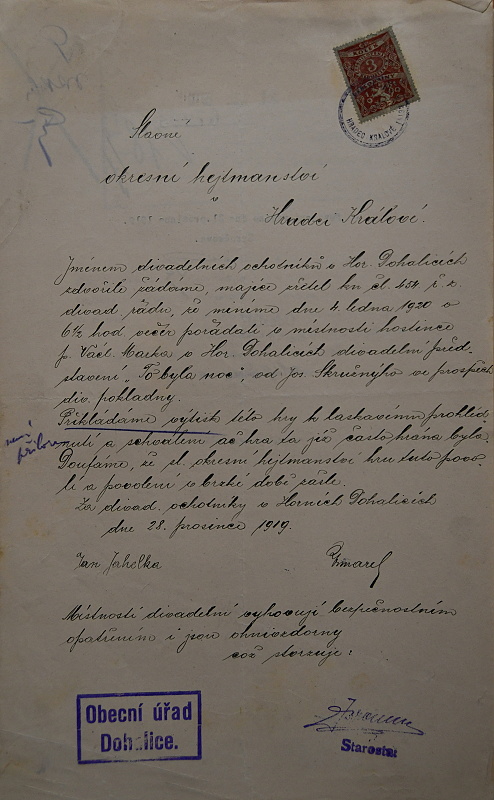 3
HRADEC KRÁLOVÉ
Slavné
okresní hejtmanství
v
Hradci Králové.
Jménem divadelních ochotníků v Hor. Dohalicích
zdvořile žádáme, majíce zřetel ku čl. 454 ř. z.
divad. řádu, že míníme dne 4. ledna 1920 o
6½ hod večer pořádati v místnosti hostince
p. Václ. Maška v Hor. Dohalicích divadelní před-
stavení „To byla noc", od Jos. Skružného ve prospěch
div. pokladny.
Přikládáme výtisk této hry k laskavému prohléd-
nutí a schválení ač hra ta již často hrána byla.
Doufáme, že sl. okresní hejtmanství hru tuto povo-
lí a povolení v brzké době zašle.
Za divad. ochotníky v Horních Dohalicích
dne 28. prosince 1919.
není
Jan Jahelka
Místnosti divadelní vyhovují bezpečnostním
opatřením i jsou ohnivzdorny
což stvrzuje:
Obecní úřad
Dohalice.
Starosta